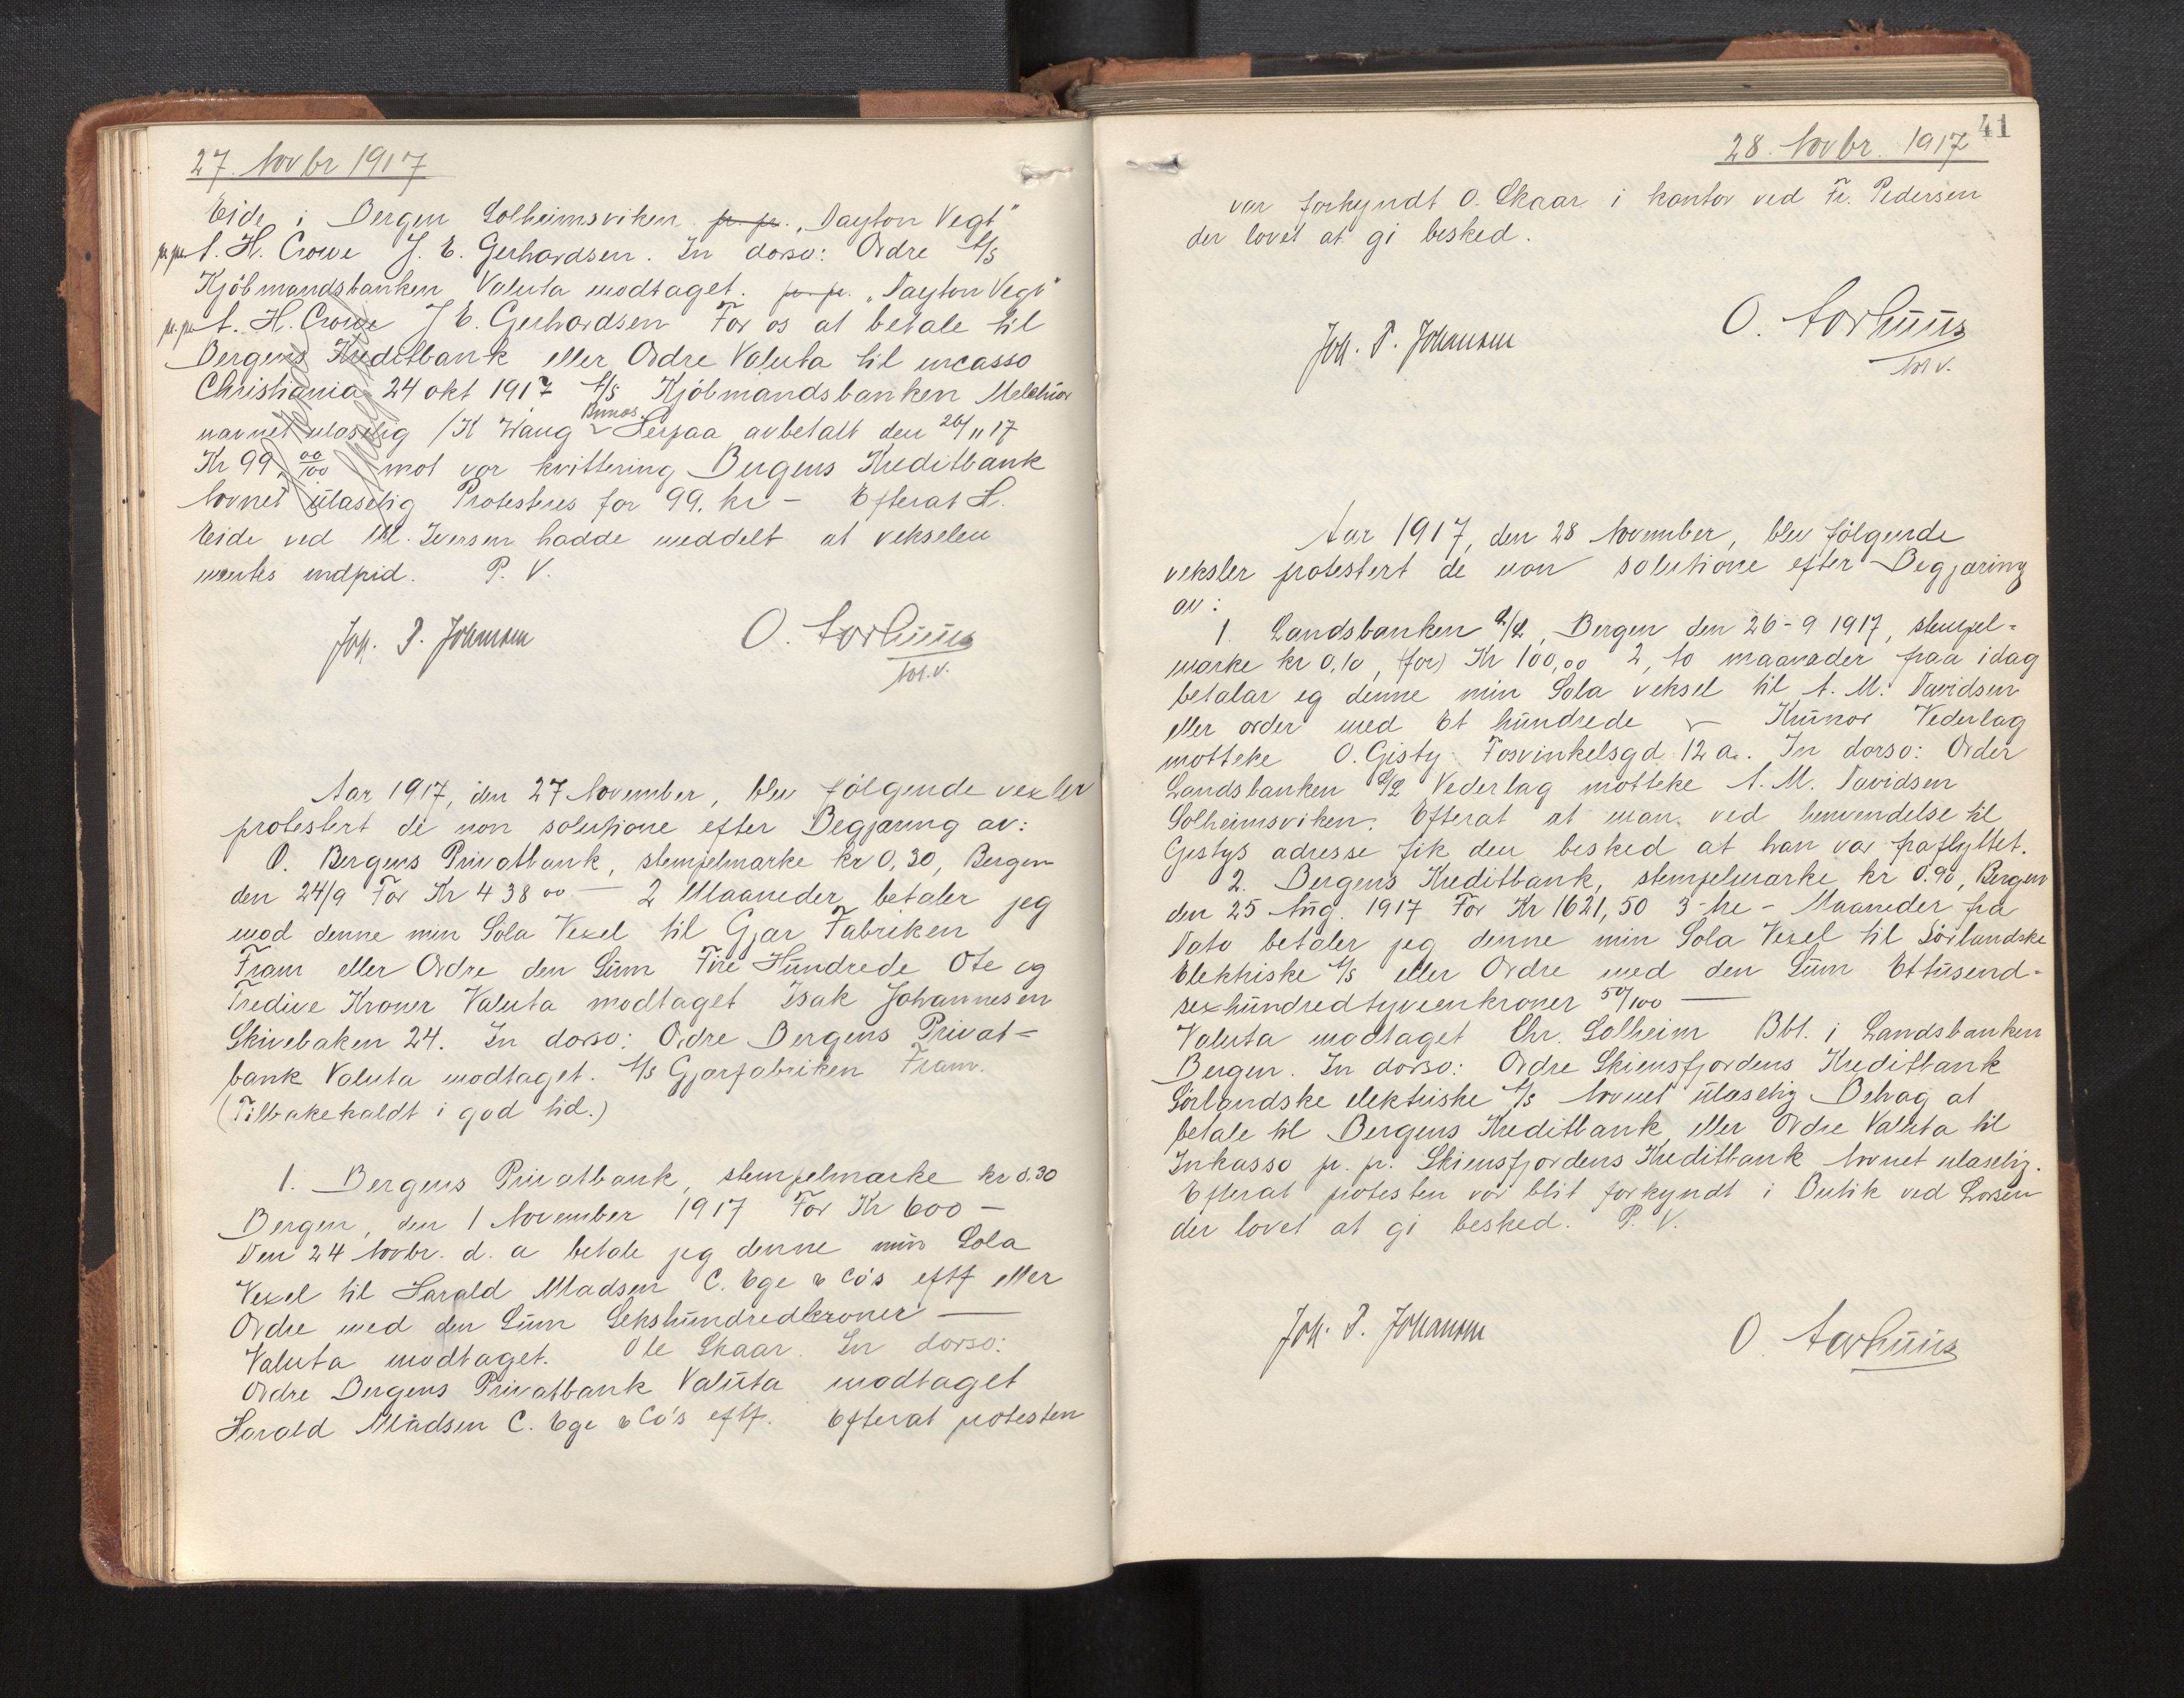 27. Novbr 1917
Eide i Bergen Solheimsviken p. p. "Dayton Vegt"
p.p. A. H. Crowe J. E. Gerhardsen. In dorso: Ordre A/S
Kjöbmandsbanken Valuta modtaget. p. p. "Dayton Vegt"
p.p. A. H. Crowe J E. Gerhardsen For os at betale til
Bergens Kreditbank eller Ordre Valuta til incasso
Christiania 24 okt 1917 A/S Kjöbmandsbanken Melchior
navnet ulæselig / K Wang Herpaa avbetalt den 26/11 17
Kr 99, 00/100 mot vor kvittering Bergens Kreditbank
Navnet ulæselig Protesteres for 99. kr - Efterat H.
Eide ved M. Iversen hadde meddelt at vekselen
ventes indfrid. P. V.
Joh. P. Johansen O. Aarhuus
Not.v.
Aar 1917, den 27 November, blev følgende vexler
protestert de non solutione efter Begjæring av:
O. Bergens Privatbank, stempelmarke kr 0,30, Bergen
den 24/9 For Kr 438 00 — 2 Maaneder betaler jeg
mod denne min Sola Vexel til Gjær Fabriken
Fram eller Ordre den Sum Fire Hundrede Ote og
Tredive Kroner Valuta modtaget Isak Johannesen
Skivebaken 24. In dorso: Ordre Bergens Privat-
bank Valuta modtaget. A/S Gjærfabriken Fram.
(Tilbakekaldt i god tid.)
1. Bergens Privatbank, stempelmarke kr 0.30
Bergen, den 1 November 1917 For Kr 600 -
Den 24 Novbr. d. a betale jeg denne min Sola
Vexel til Harald Madsen C. Ege & Co's eftf eller
Ordre med den Sum Sekshundredkroner —
Valuta modtaget. Ole Skaar. In dorso:
Ordre Bergens Privatbank Valuta modtaget
Harald Madsen C. Ege & Co's eftf. Efterat protesten
41
28. Novbr. 1917
var forkyndt O. Skaar i kontor ved Fr. Pedersen
der lovet at gi besked.
Joh. P. Johansen O. Aarhuus
Not v.
Aar 1917, den 28 November, blev følgende
veksler protestert de non solutione efter Begjæring
av:
1. Landsbanken A/L, Bergen den 26-9 1917, stempel=
marke kr 0,10, (for) Kr 100,00 2, to maanader fraa idag
betalar eg denne min Sola veksel til A. M. Davidsen
eller order med Et hundrede — Krunor Vederlag
motteke O. Gisty Torvinkelsgd 12 a. In dorso: Order
Landsbanken A/L Vederlag motteke A. M. Davidsen
Solheimsviken. Efterat at man ved henvendelse til
Gistys adresse fik den besked at han var fraflyttet.
2. Bergens Kreditbank, stempelmarke kr 0.90, Bergen
den 25 Aug. 1917 For Kr 1621,50 3-tre - Maaneder fra
Dato betaler jeg denne min Sola Vexel til Sörlandske
Elektriske A/S eller Ordre med den Sum Ettusend=
sexhundredtyveenkroner 50/100 —
Valuta modtaget Chr. Solheim Bbt. i Landsbanken
Bergen. In dorso: Ordre Skiensfjordens Kreditbank
Sörlandske elektriske A/S Navnet ulæselig Behag at
betale til Bergens Kreditbank eller Ordre Valuta til
Inkasso p. p. Skiensfjordens Kreditbank Navnet ulæselig.
Efterat protesten var blit forkyndt i Butik ved Larsen
der lovet at gi besked. P. V.
Joh. P. Johansen O. Aarhuus